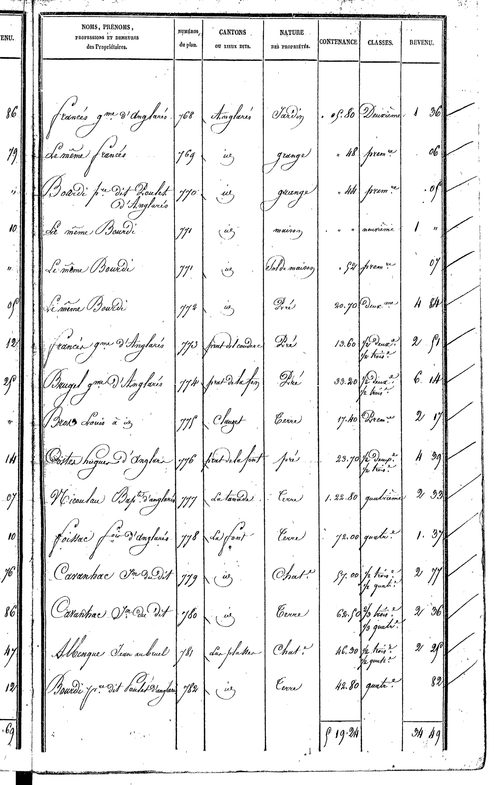 NOMS, PRÉNOMS, PROFESSIONS ET DEMEURES des Propriétaires. NUMÉROS du plan. CANTONS OU LIEUX DITS. NATURE DES PROPRIÉTÉS. CONTENANCE CLASSES. REVENU.
86 francés gme d'Anglarés 768 Anglarés Jardin " 05.80 Deuxième 1 36
79 Le même francés 769 id grange " 48 premre 06
Bourdi pre dit Poulet d'Anglarés 770 id grange " 44 premre 05
10 Le même Bourdi 771 id maison " " 1 "
" Le même Bourdi 771 id Sol de maison " 52 premre 07
05 Le même Bourdi 772 id Pré 20.70 deuxme 4 84
12 francés gme d'Anglarés 773 Pré 13.60 pe deux.e pe trois.e 2 51
25 Bruget gme d'Anglarés 774 Pré 33.20 pe deux.e pe trois.e 6. 14
" Bros Louis à id 775 Clauzet Terre 17.40 Prem.re 2 17
14 Costes hugues d'Anglars 776 prat de la font pré 23.70 pe deux.e pe trois.e 4 39
07 Nicoulau Bapte d'anglarés 777 Terre 1.22.80 quatrième 2 33
10 foissac d'Anglarés 778 La font Terre 72.00 quatr.e 1. 37
76 Cavanhac Jn du dit 779 id Chat.e 57.00 pe trois.e pe quatr.e 2 77
86 Cavanhac Jn du dit 780 id Terre 62.50 pe trois.e pe quatr.e 2 36
47 Albenque Jean 781 Las plasses Chat.e 46.30 pe trois.e pe quatr.e 2 25
12 Bourdi pre dit Poulet d'anglars 782 id Terre 42.80 quatr.e 82
.69 5 19.24 34 49